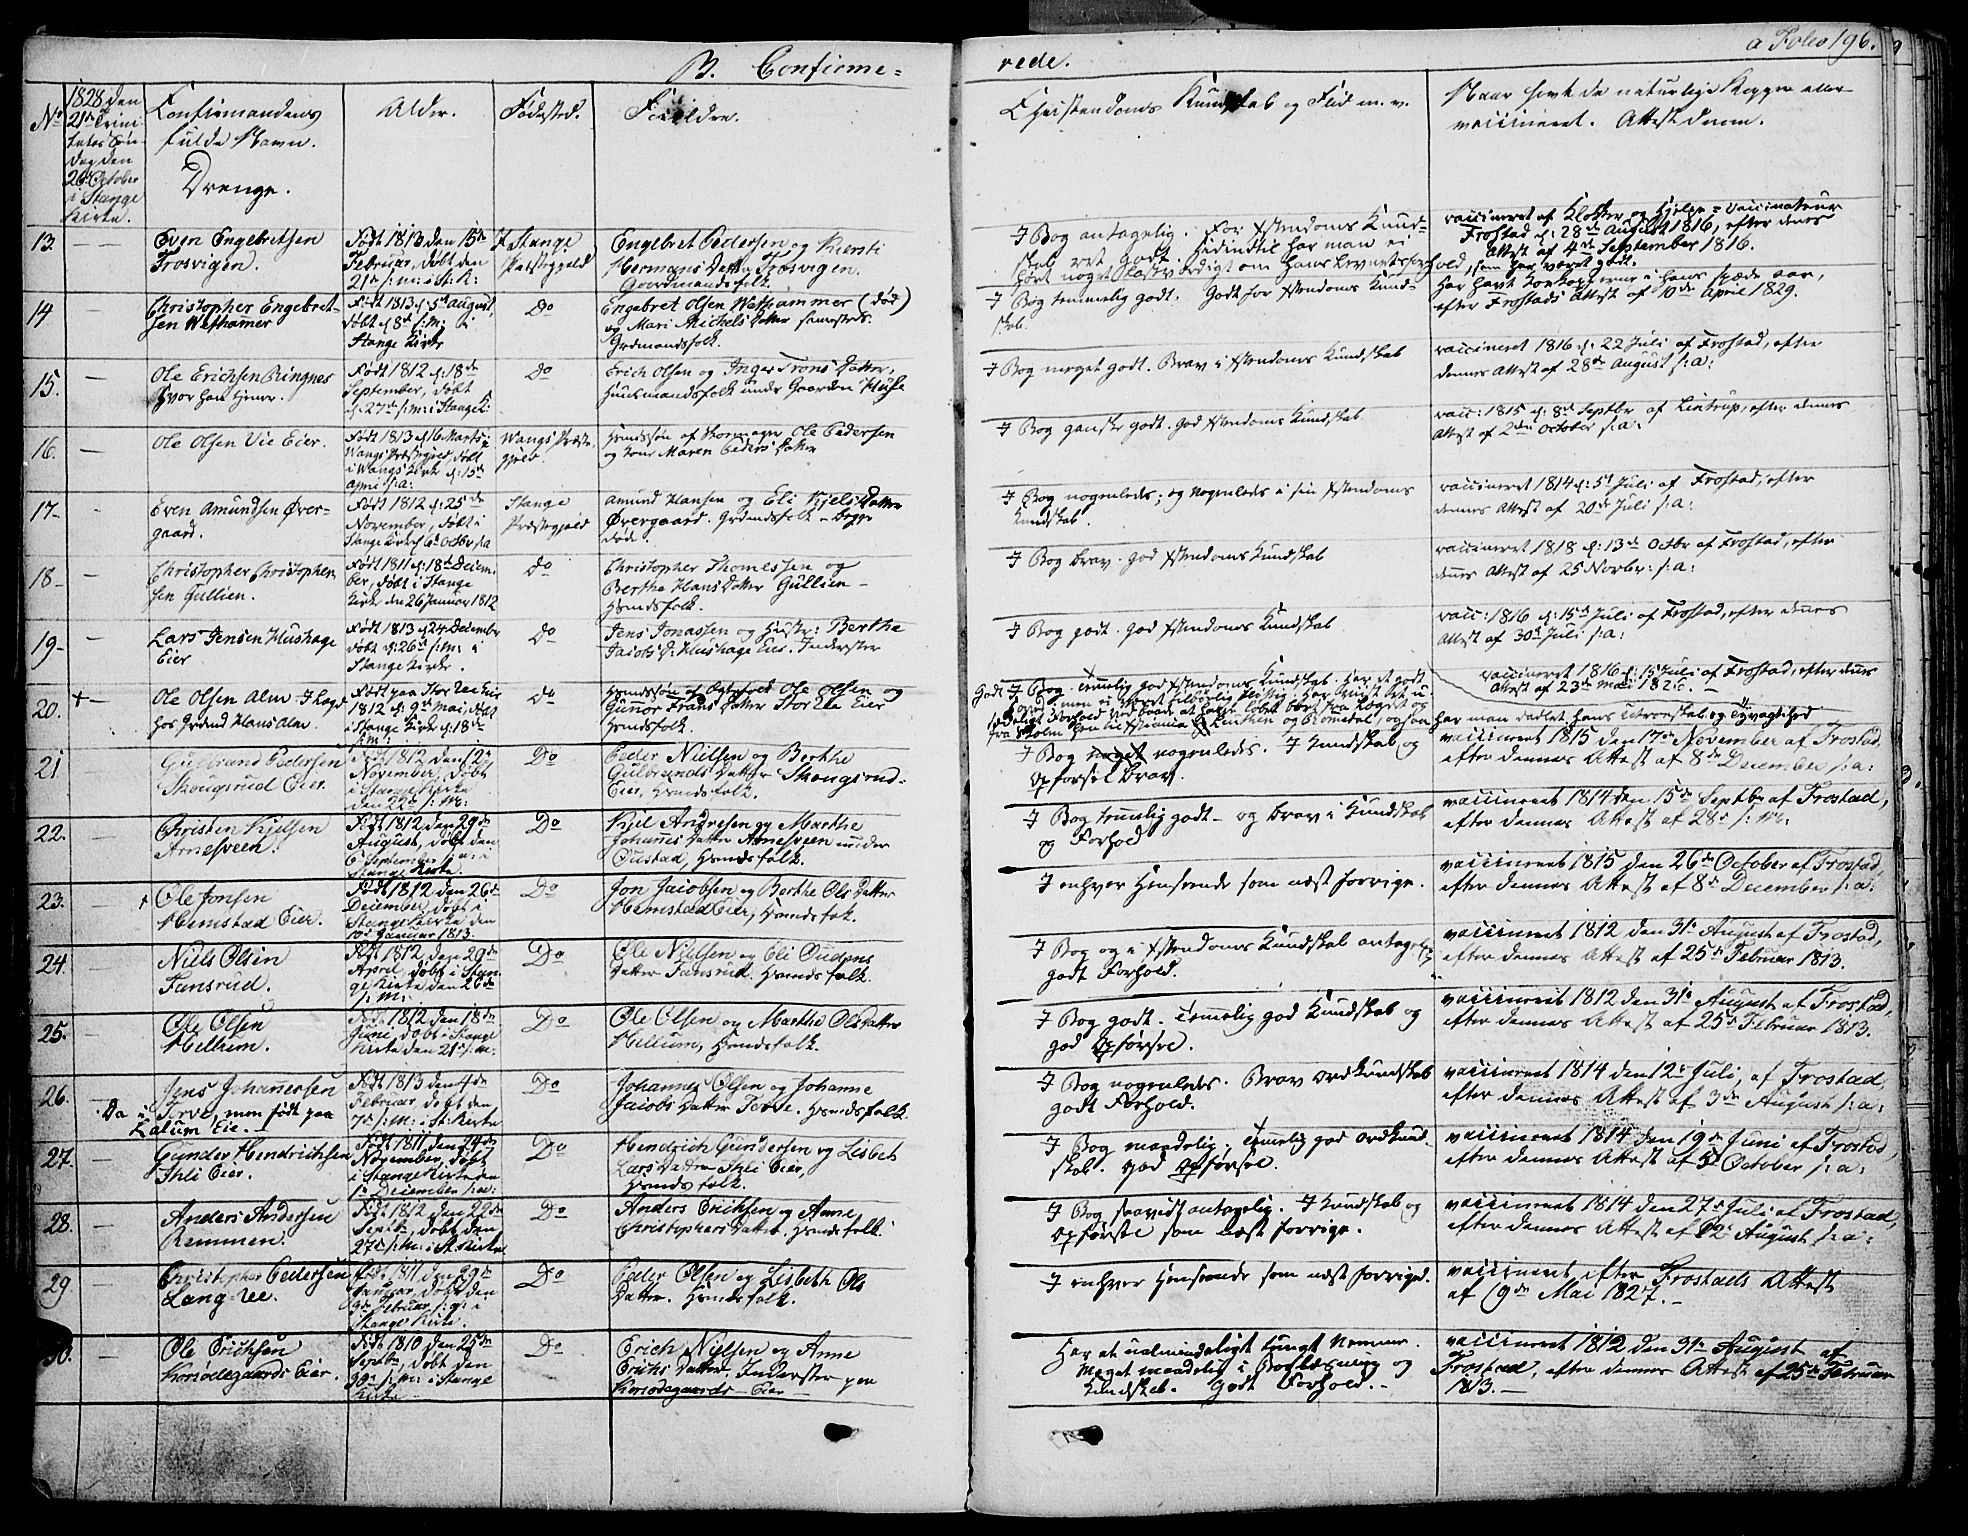 B. Confirme=
rede.
a Folio 196.
No
1828 den
21de Trini
tatis Søn
dag den
26 October
i Stange
Kirke.
Confirmandens
fulde Navn.
Drenge.
Alder.
Fødested.
Forældre.
Christendoms Kundskab og Flid m. v.
Naar havt de naturlige Kopper eller
vaccineret. Attest derom.
13.
Even Engebretsen
Frosvigen.
Født 1813 den 15de
Februar, døbt den
21de s: m: i St: K:
I Stange
Præstegjeld
Engebret Pedersen og Kiersti
Hermans Datter Frosvigen.
Gaardmandsfolk.
I Bog antagelig. For Xstendoms Kund=
skab ret godt. Sidindtil har man ei
hørt noget lastværdigt om hans Levnetsforhold, som har været godt.
vaccineret af Klokker og Hjelpe=Vaccinateur
Frostad d: 28de August 1816, efter denes
Attest af 4de September 1816.
14
Christopher Engebret-
sen Wethammer
Født 1813 d: 5te August,
døbt d: 8de s: m: i
Stange Kirke
Do
Engebret Olsen Wethammer (død)
og Mari Michels Datter sammesteds.
Grdmandsfolk.
I Bog temmelig godt. Godt for Xstendoms Kund-
skab.
Har havt Kopperne i hans spæde Aar,
efter Frostads Attest af 10de April 1829.
15.
Ole Erichsen Ringnes
hvor han tjener.
Født 1812 d: 18de
September, døbt
d: 27de s: m: i Stange K:
Do
Erich Olsen og Inger Trons Datter,
Huusmandsfolk under Gaarden Huse
I Bog meget godt. Brav i Xstendoms Kundskab
vaccineret 1816 d: 22 Juli af Frostad, efter
dennes Attest af 28de August s: a:
16.
Ole Olsen Vie Eier.
Født 1813 d: 16 Marts i
Wangs Præstegjeld, døbt
i Wangs Kirke d: 15de
April s: a:
Wangs Præste
gjeld.
Hmdssøn af Skomager Ole Pedersen
og Kone Maren Peders Datter
I Bog ganske godt. God Xstendoms Kundskab.
vacc: 1815 d: 8de Septbr af Lintrup, efter dennes
Attest af 2den October s: a:
17-
Even Amundsen Øver-
gaard.
Født 1812 d: 25de
November, døbt i
Stange Kirke d: 6te Octbr s: a
Stange
Præstegjeld
Amund Hansen og Eli Kjels Datter
Øvergaard. Grdmdsfolk - begge
døde.
I Bog nogenledes; og nogenledes i sin Xstendoms
Kundskab.
vaccineret 1814 d: 5te Juli af Frostad, efter
dennes Attest af 20de Juli s: a:
18-
Christopher Christopher
sen Gullien.
Født 1811 d: 18de Decem-
ber, døbt i Stange
Kirke den 26 Januar 1812
Do
Christopher Thomessen og
Berthe Hans Datter Gullien -
Hsmdsfolk.
I Bog brav. God Xstendoms Kundskab
vaccineret 1818 d: 13de Octbr af Frostad, efter
dennes Attest af 25 Novbr: s: a:
19-
Lars Jensen Hushage
Eier
Født 1813 d: 24 December
døbt d: 26de s: m: i
Stange Kirke.
Do
Jens Jonassen og Hustr: Berthe
Jacobs D: Hushage Eier. Inderster
I Bog godt. God Xstendoms Kundskab
vacc: 1816 d: 15de Juli af Frostad, efter dennes
Attest af 30te Juli s: a:
20.
+
Ole Olsen Alm
hos Grdmd Hans Alm.
Født paa Stor Ree Eier
1812 d: 9de Mai, døbt
i Stange Kirke d: 18de
s: m:
Do
Hsmdssøn af Ole Olsen og
Gunnor Frans Datter Stor Ree Eier
Hsmdsfolk.
Godt I Bog. Temmelig god Xstendoms Kundskab. Har et godt
vaccineret 1816 d: 15de Juli af Frostad, efter denes
Attest af 23de Mai 1826. -
har man dadlet hans
21
Gulbrand Pedersen
Skougsrud Eier.
Født 1812 den 12te
November, døbt
i Stange Kirke
den 22de s: m:
Do
Peder Nielsen og Berthe
Gulbrands Datter Skougsrud-
Eier, Hsmdsfolk.
I Bog meget nogenledes. I Kundskab og
Opførsel brav.
vaccineret 1815 den 17de November af Frostad,
efter dennes Attest af 8de December s: a:
22.
Christen Kjelsen
Arnesveen.
Født 1812 den 29de
August, døbt den
6 September s: a: i
Stange Kirke.
Do
Kjel Andresen og Marthe
Johannes Datter Arnesveen under
Oustad, Hsmdsfolk.
I Bog temmelig godt - og brav i Kundskab
og Forhold
vaccineret 1814 den 15de Septbr af Frostad,
efter dennes Attest af 28de s: m:
23.
Ole Jonsen
Hemstad Eier.
Født 1812 den 26de
December, døbt i
Stange Kirke den
10de Januar 1813.
Do
Jon Jacobsen og Berthe Ols Datter
Hemstad Eier, Hsmdsfolk.
I enhver Henseende som næst forrige.
vaccineret 1815 den 26de October af Frostad,
efter dennes Attest af 8de December s: a:
24.
Niels Olsen
Fansrud.
Født 1812 den 20de
April, døbt i Stan-
ge Kirke den 26de
s: m:
Do
Ole Nielsen og Eli Oudens
Datter Fansrud. Hsmdsfolk.
I Bog og i Xstendoms Kundskab antagelig
godt Forhold.
vaccineret 1812 den 31te August af Frostad,
efter dennes Attest af 25de Februar 1813.
25.
Ole Olsen
Hellum.
Født 1812 den 18de
Juni, døbt i Stange
Kirke den 21de s: m:
Do
Ole Olsen og Marthe Ols Datter
Hellum, Hsmdsfolk.
I Bog godt. Temmelig god Kundskab og
god Opførsel.
vaccineret 1812 den 31te August af Frostad,
efter dennes Attest af 25de Februar 1813.
26.
Jens Johannessen
Torve, men født paa
Lalum Eie.
Født 1813 den 4de
Februar, døbt den
7de s: m: i St: Kirke
Do
Johannes Olsen og Johanne
Jacobs Datter Torve. Hsmdsfolk
I Bog nogenledes. Brav Ordkundskab
godt Forhold.
vaccineret 1814 den 12te Juli, af Frostad,
efter dennes Attest af 3de August s: a:
27.
Gunder Hendrichsen
Ihli Eier.
Født 1811 den 24de
November, døbt
i Stange Kirke den
1te December s: a:
Do
Hendrich Gundersen og Lisbet
Lars Datter Ihli Eier,
Hsmdsfolk.
I Bog maadelig. Temmelig god Ordkund-
skab. God Opførsel.
vaccineret 1814 den 19de Juni af Frostad,
efter dennes Attest af 5te October s: a:
28.
Anders Andersen
Remmen.
Født 1812 den 22de
Septbr, døbt den
27de s: m: i St. Kirke
Do
Anders Erichsen og Anne
Christophers Datter. Hsmdsfolk.
I Bog saavidt antagelig. I Kundskab og
Opførsel som næst forrige.
vaccineret 1814 den 27de Juli af Frostad,
efter dennes Attest af 12te August s: a:
29.
Christopher Pedersen
Lang-Ree.
Født 1811 den 29de
Januar, døbt den
9de Februar s: a: i
Stange Kirke.
Do
Peder Olsen og Lisbeth Ols
Datter. Hsmdsfolk.
I enhver Henseende som næst forrige.
vaccineret efter Frostads Attest
af 19de Mai 1827.-
30.
Ole Erichsen
Korsødegaards Eier.
Født 1810 den 25de
Septbr, døbt den
30te s: m: i Stange
Kirke
Do
Erich Nielsen og Anne
Erichs Datter. Inderster paa
Korsødegaards-Eier
Har et ualmindeligt tungt Nemme.
Meget maadelig i Boglæsning og
Kundskab. Godt Forhold.-
vaccineret 1812 den 31te August af
Frostad, efter dennes Attest af 25de Februar
1813.-